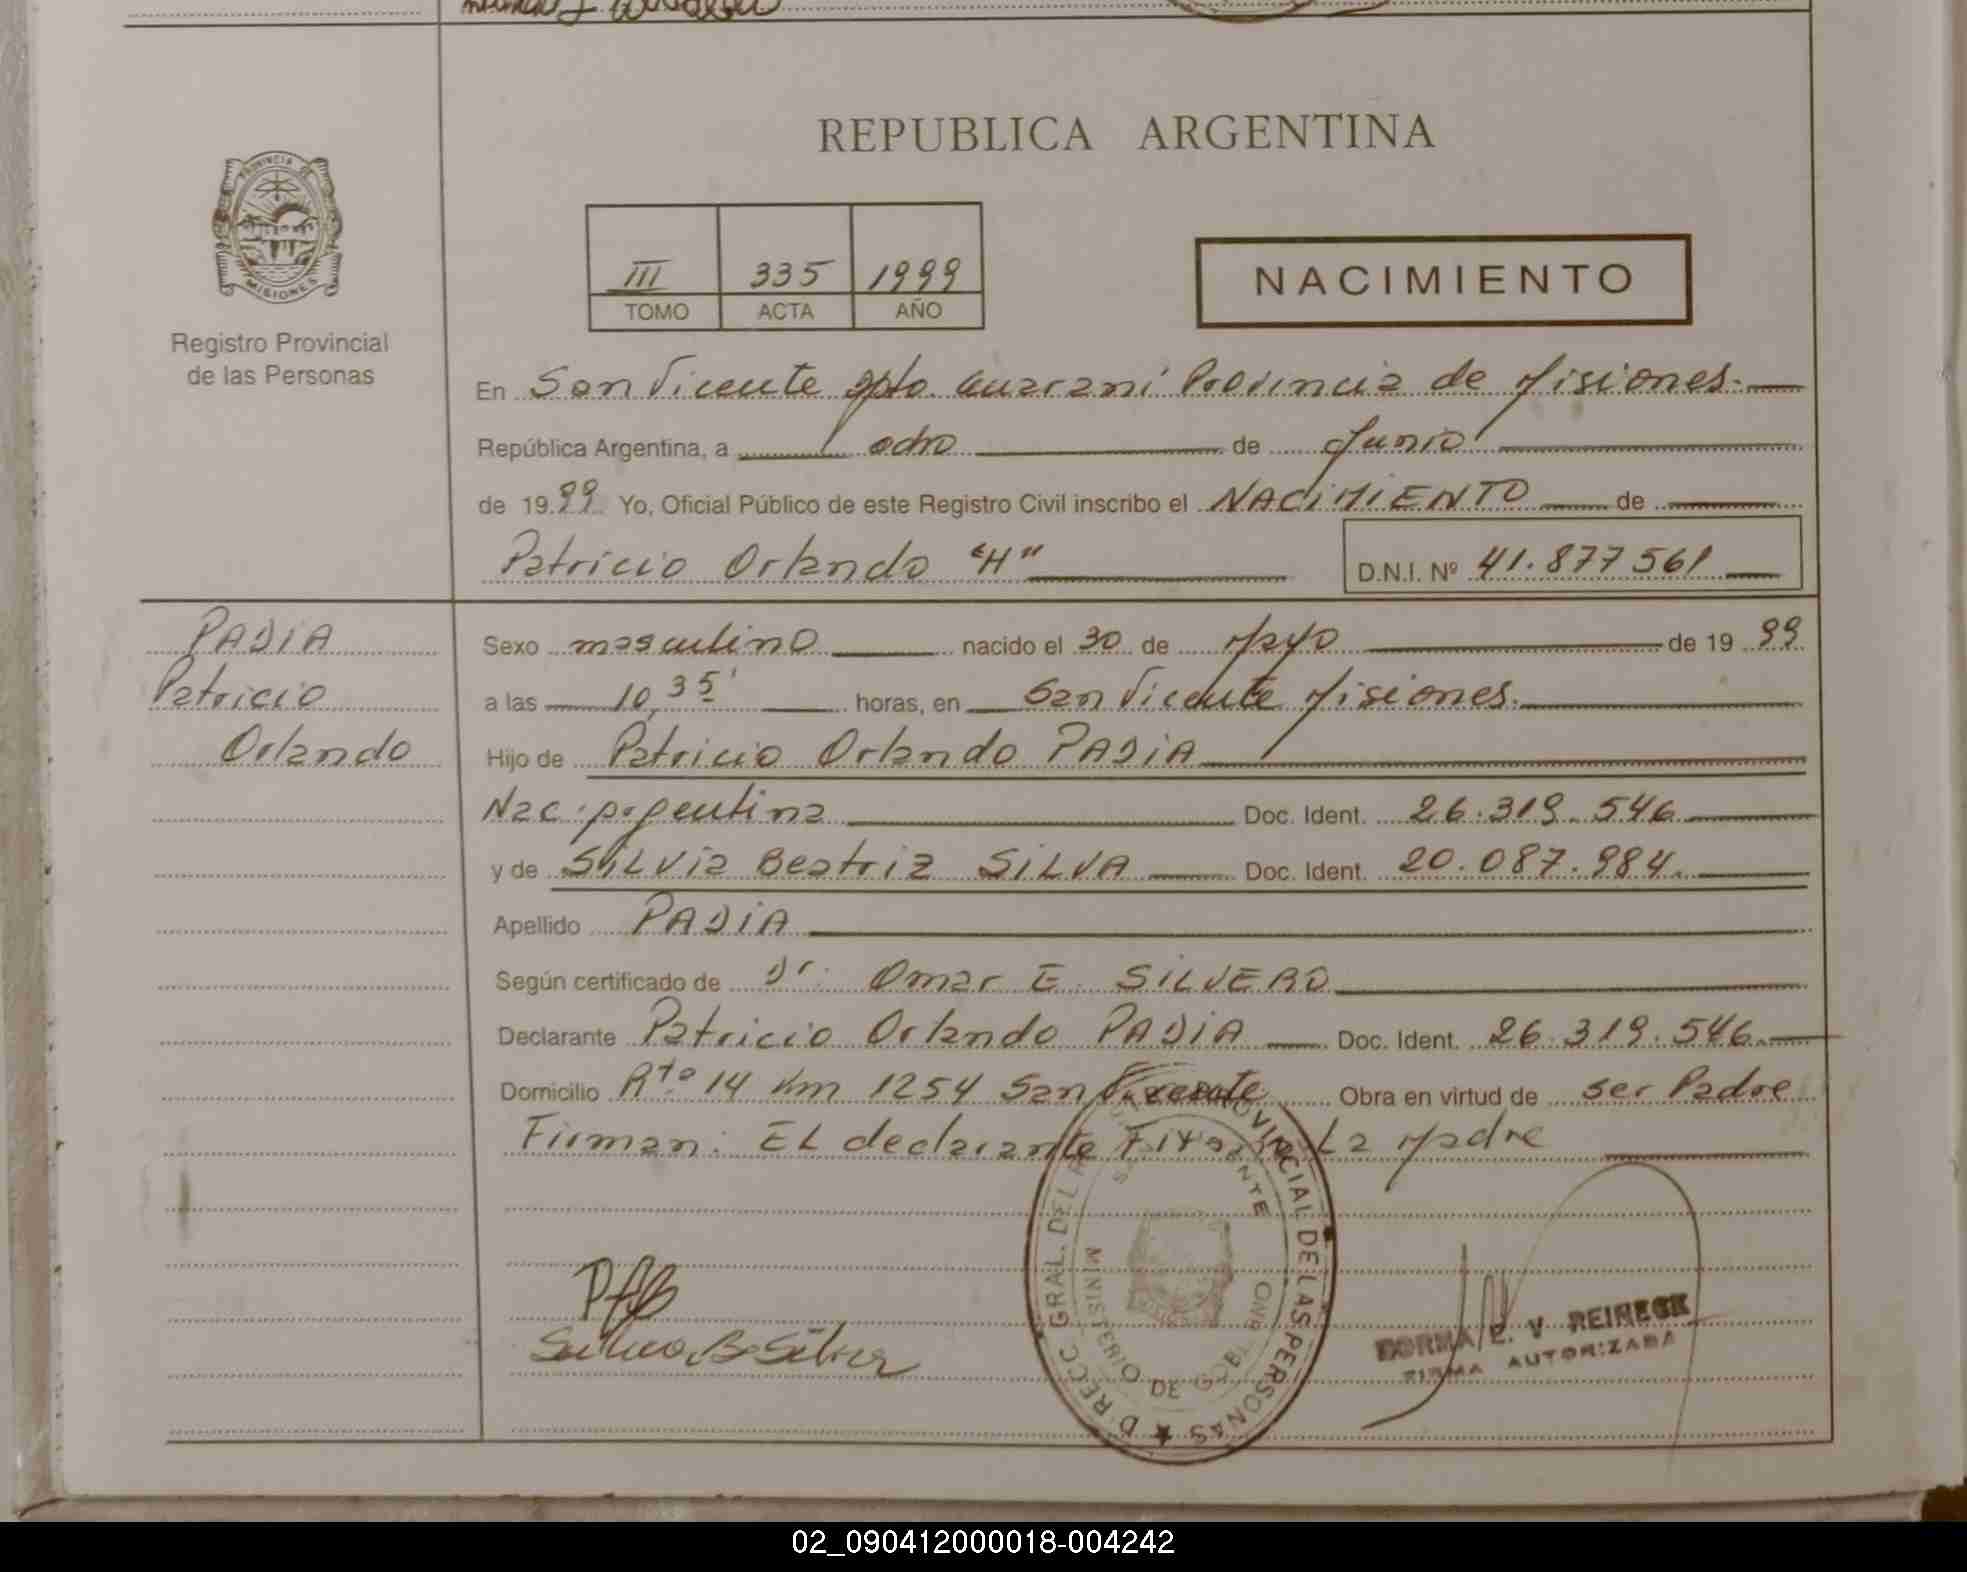 PROVINCIA DE
MISIONES
Registro Provincial
de las Personas
REPUBLICA ARGENTINA
III 335 1999
TOMO ACTA AÑO
NACIMIENTO
En San Vicente Dpto. Guaraní Provincia de Misiones.
República Argentina, a ocho de Junio
de 1999 Yo, Oficial Público de este Registro Civil inscribo el NACIMIENTO de
Patricio Orlando "H" D.N.I. Nº 41.877561
PADIA
Patricio
Orlando
Sexo masculino nacido el 30 de Mayo de 1999
a las 10,35' horas, en San Vicente Misiones.
Hijo de Patricio Orlando PADIA
Nac. Argentina Doc. Ident. 26.319.546
y de SILVia Beatriz SILVA Doc. Ident. 20.087.984.
Apellido PADIA
Según certificado de Dr. Omar E. SILVERO
Declarante Patricio Orlando PADIA Doc. Ident. 26.319.546.
Domicilio Rta 14 Km 1254 San Vicente Obra en virtud de ser Padre
Firman: EL declarante Firma La Madre
DIRECC. GRAL. DEL PROVINCIAL DE LAS PERSONAS
MINISTERIO DE GOBIERNO
Silvia B. Silva
NORMA E. V. REINECK
FIRMA AUTORIZADA
02_090412000018-004242